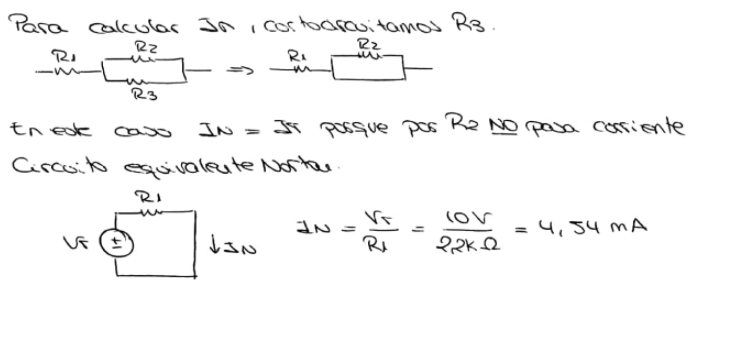 Para calcular IN, cortocircuitamos R3.
R1 R2 R3 ⇒ R1 R2
En este caso IN = IT porque por R2 NO pasa corriente
Circuito equivalente Norton.
R1
VT ± ↓IN
IN = VT / R1 = 10V / 2,2KΩ = 4,54 mA